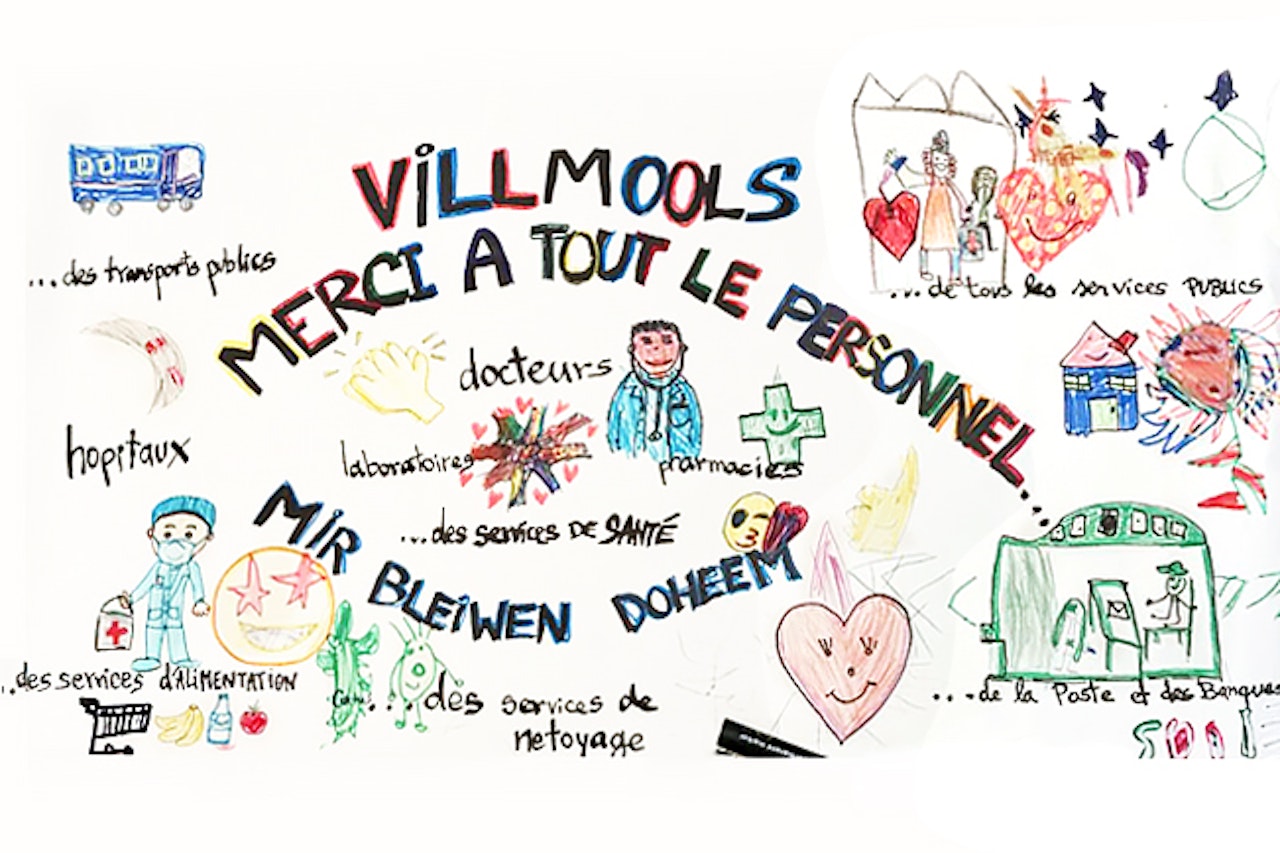 VILLMOOLS
MERCI A TOUT LE PERSONNEL...
...des transports publics
...de tous les services PUBLICS
docteurs
hopitaux
laboratoires
pharmacies
...des services DE SANTÉ
MIR BLEIWEN DOHEEM
...des services d'ALIMENTATION
...des services de
netoyage
...de la Poste et des Banques